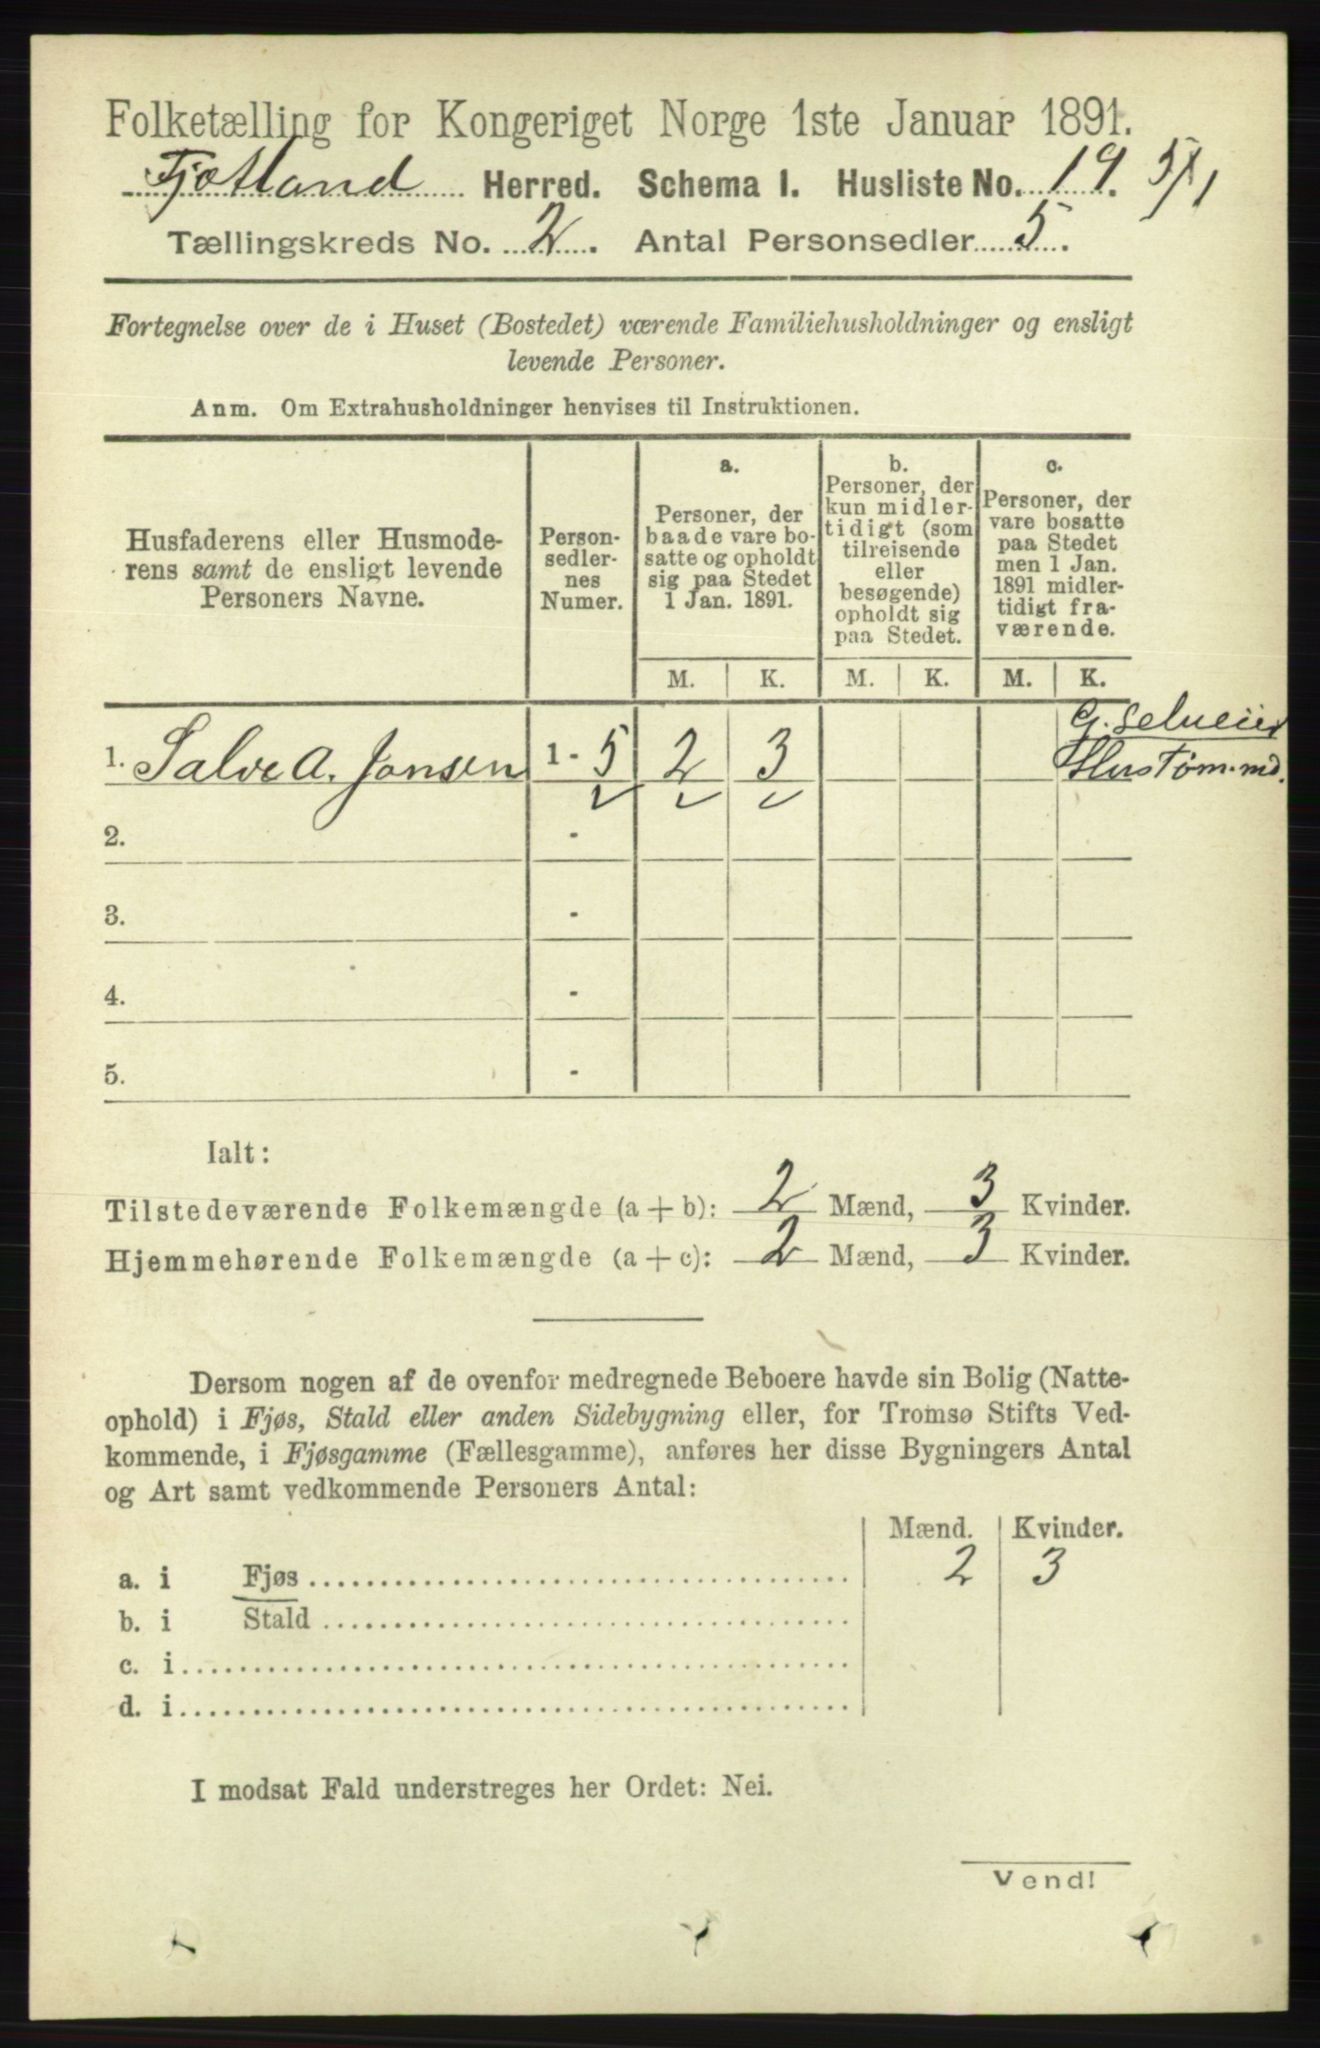 Folketælling for Kongeriget Norge 1ste Januar 1891.
Fjotland Herred. Schema I. Husliste No. 19. 5/1 1
Tællingskreds No. 2. Antal Personsedler 5.
Fortegnelse over de i Huset (Bostedet) værende Familiehusholdninger og ensligt
levende Personer.
Anm. Om Extrahusholdninger henvises til Instruktionen.
Husfaderens eller Husmode-
rens samt de ensligt levende
Personers Navne.
Person-
sedler-
nes
Numer.
a.
Personer, der
baade vare bo-
satte og opholdt
sig paa Stedet
1 Jan. 1891.
b.
Personer, der
kun midler-
tidigt (som
tilreisende
eller
besøgende)
opholdt sig
paa Stedet.
c.
Personer, der
vare bosatte
paa Stedet
men 1 Jan.
1891 midler-
tidigt fra-
værende.
M. K. M. K. M. K.
G. Selveier
1. Salve A. Jonsen 1 - 5 2 3 Hus Tøm.md.
2. -
3. -
4. -
5. -
Ialt:
Tilstedeværende Folkemængde (a + b): 2 Mænd, 3 Kvinder.
Hjemmehørende Folkemængde (a + c): 2 Mænd, 3 Kvinder.
Dersom nogen af de ovenfor medregnede Beboere havde sin Bolig (Natte-
ophold) i Fjøs, Stald eller anden Sidebygning eller, for Tromsø Stifts Ved-
kommende, i Fjøsgamme (Fællesgamme), anføres her disse Bygningers Antal
og Art samt vedkommende Personers Antal:
Mænd. Kvinder.
a. i Fjøs 2 3
b. i Stald
c. i
d. i
I modsat Fald understreges her Ordet: Nei.
Vend!